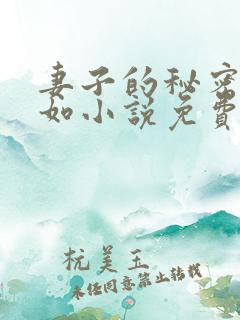 妻子的秘密
如小说免费
杭美玉
未经同意禁止转载